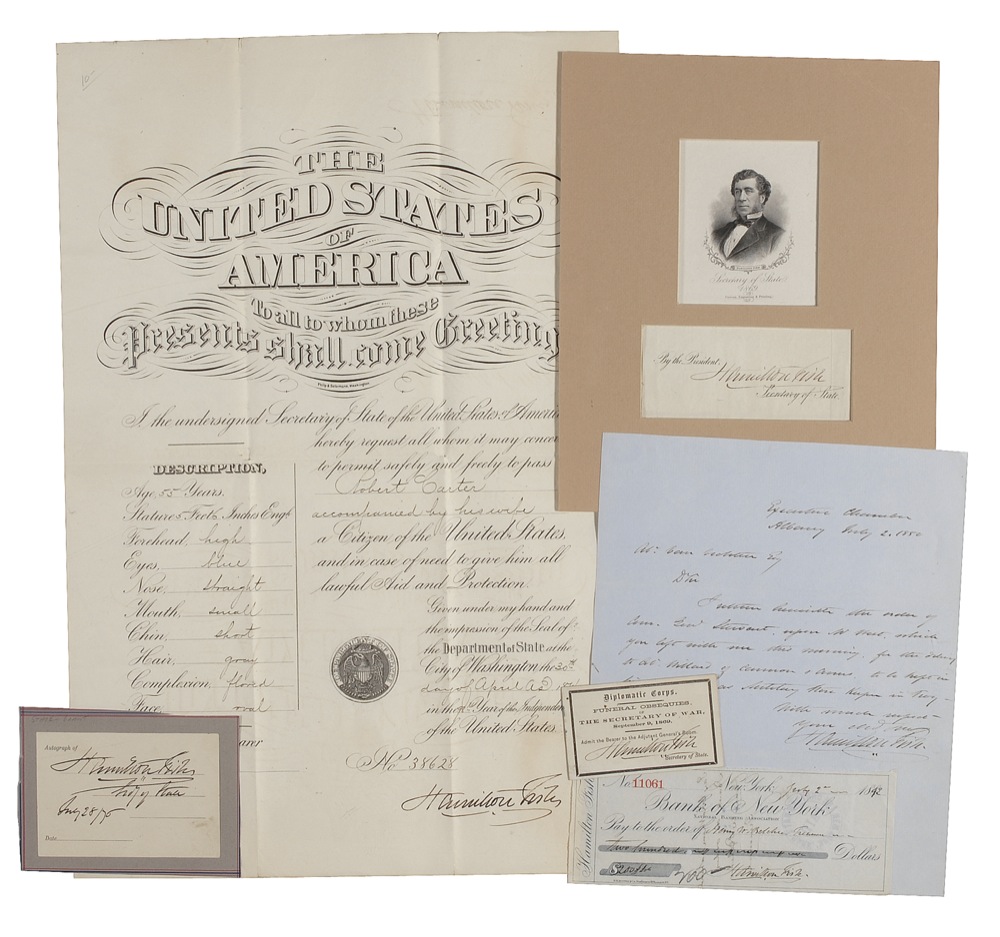 10-
THE
UNITED STATES
OF
AMERICA
To all to whom these
Presents shall come Greeting
Philp & Solomons, Washington.
I the undersigned Secretary of State of the United States of America
hereby request all whom it may concern
to permit safely and freely to pass
Robert Carter
accompanied by his wife
a Citizen of the United States,
and in case of need to give him all
lawful Aid and Protection.
DESCRIPTION,
Age, 55 Years.
Stature 5 Feet 6 Inches Engh
Forehead, high
Eyes, blue
Nose, straight
Mouth, small
Chin, short
Hair, gray
Complexion, florid
Face, oval
Given under my hand and
the impression of the Seal of
the Department of State at the
City of Washington, the 30th
day of April A.D.
in the Year of the Independence
of the United States.
No. 38628
Hamilton Fish
Secretary of State
1869
By the President:
Hamilton Fish
Secretary of State.
Executive Chamber
Albany July 2. 1850
Sir
I return herewith the order of
upon which
you left with me this morning, for the delivery
to be kept in
as
With much respect
Hamilton Fish
Diplomatic Corps.
FUNERAL OBSEQUIES
OF
THE SECRETARY OF WAR,
September 9, 1869.
Admit the Bearer to the Adjutant General's Room.
Hamilton Fish
Secretary of State.
Autograph of
Hamilton Fish
Secy of State
July 28/75
Date
Hamilton Fish
No. 11061
New York July 2nd 1892
Bank of New York
National Banking Association
Pay to the order of Henry W. Treasurer
Two hundred
Dollars
$200
Hamilton Fish.